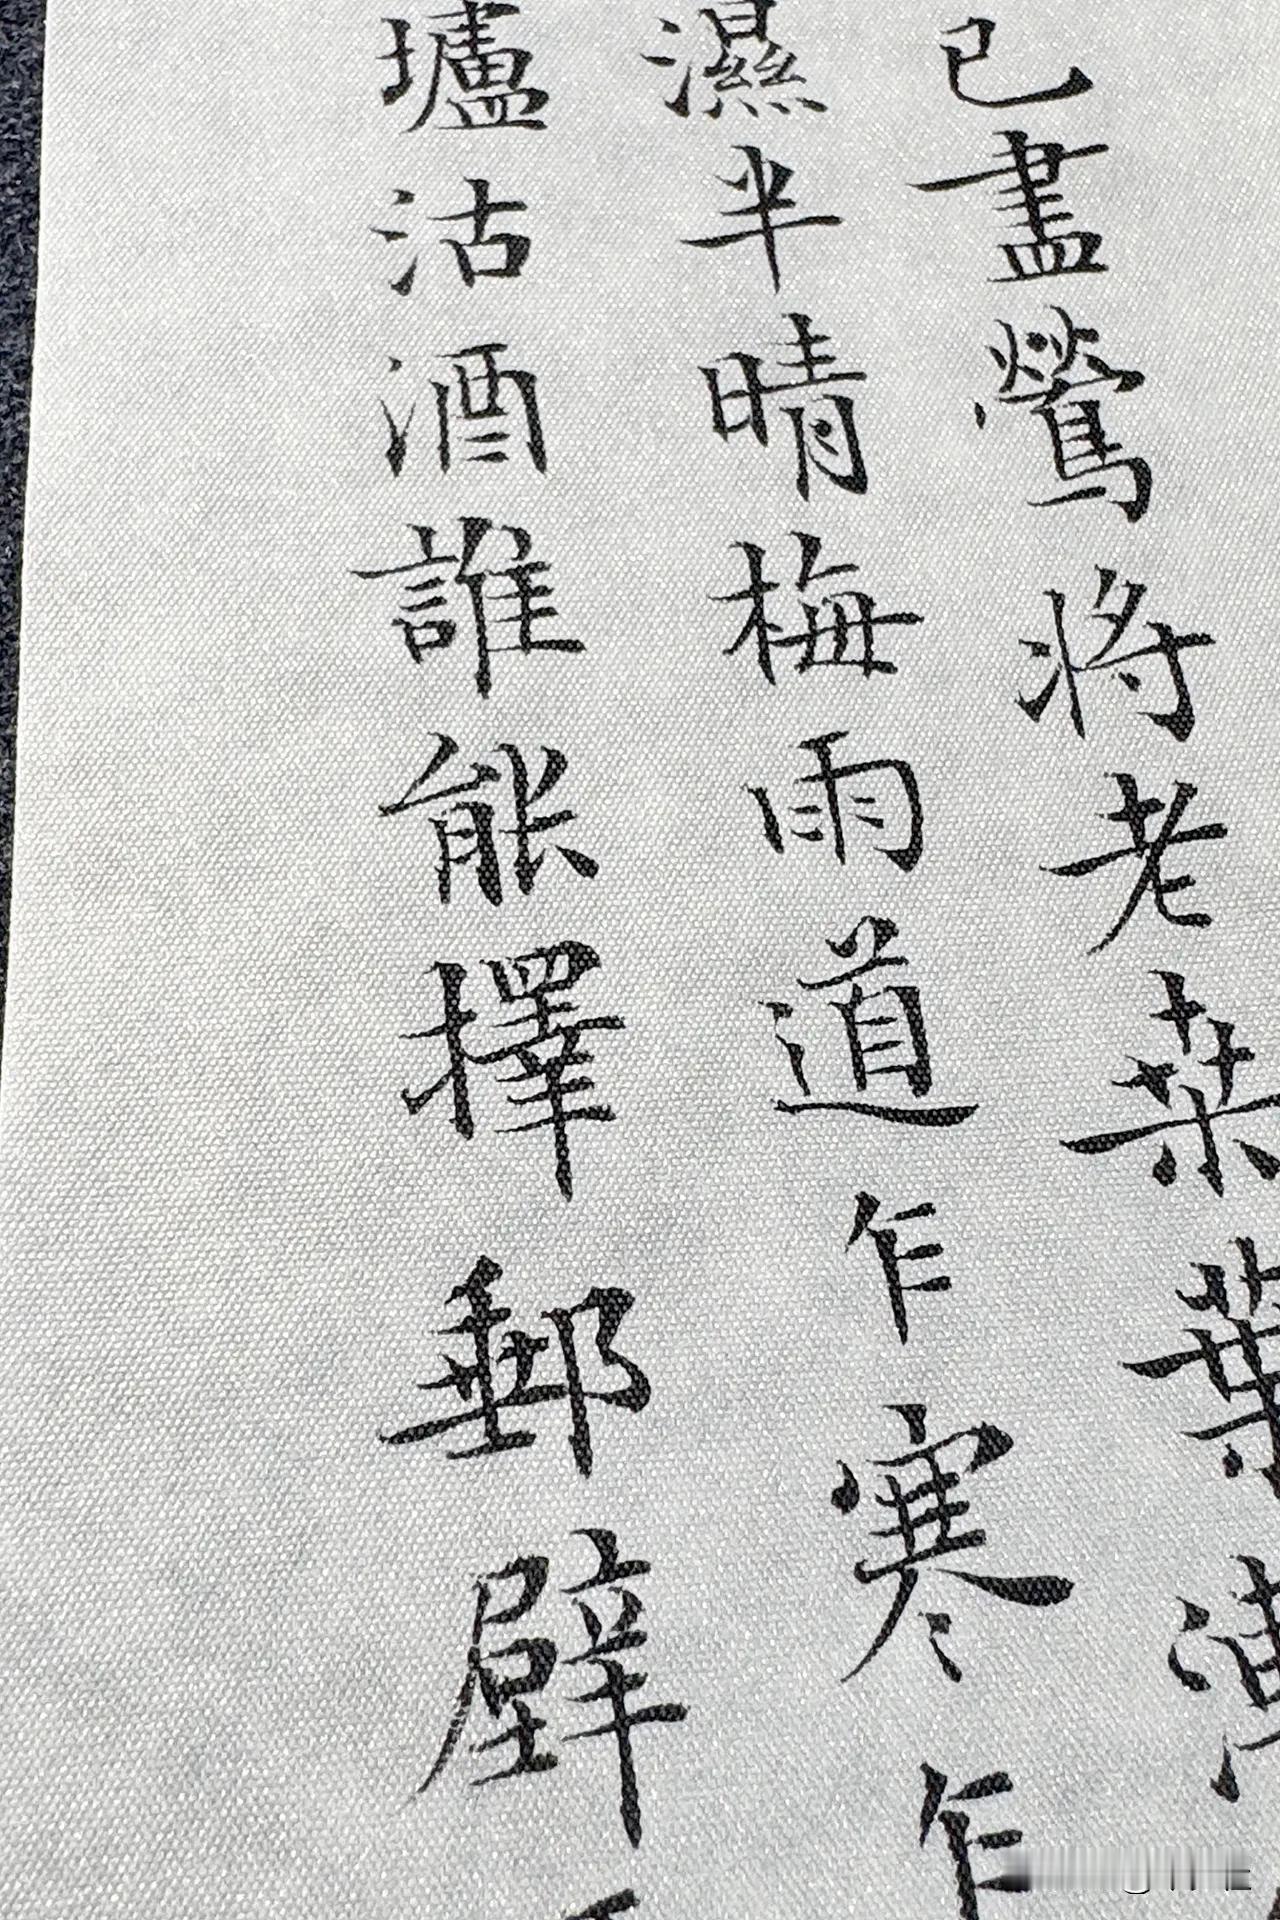 已盡鶯將老桒葉
濕半晴梅雨道乍寒乍
壚沽酒誰能擇郵